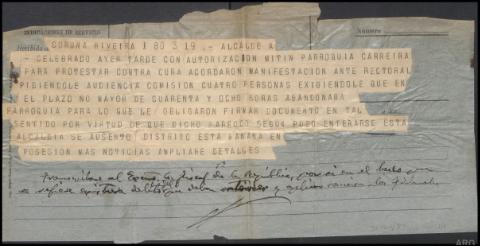 INDICACIONES DE SERVICIO
Número
Recibido
CORUÑA RIVEIRA 1 80 3 19 .- ALCALDE A
- CELEBRADO AYER TARDE CON AUTORIZACION MITIN PARROQUIA CARREIRA
PARA PROTESTAR CONTRA CURA ACORDARON MANIFESTACION ANTE RECTORAL
PIDIENDOLE AUDIENCIA COMISION CUATRO PERSONAS EXIGIENDOLE QUE EN
EL PLAZO NO MAYOR DE CUARENTA Y OCHO HORAS ABANDONARA
PARROQUIA PARA LO QUE LE OBLIGARON FIRMAR DOCUMENTO EN TAL
SENTIDO POR VIRTUD DE QUE DICHO PARROCO SEGUN PUDO ENTERARSE ESTA
ALCALDIA SE AUSENTO DISTRITO ESTA MAÑANA EN
POSESION MAS NOTICIAS AMPLIARE DETALLES
al Excmo. de la República, por si en el hecho que
se refiere existiera delito
ARO